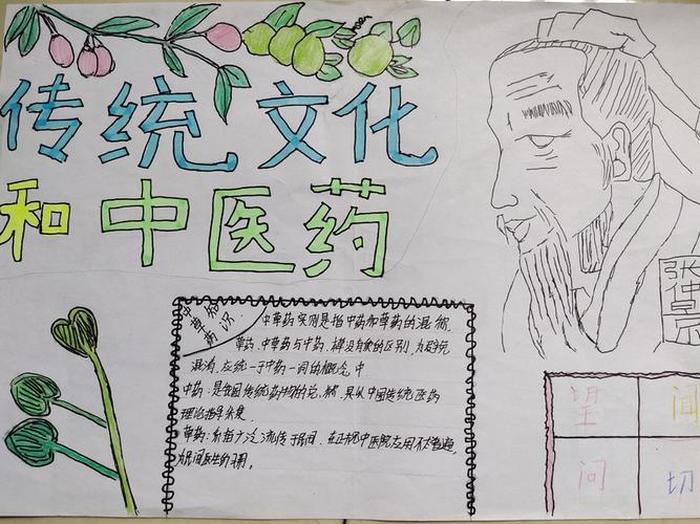 传统文化
和中医药
中草药知识
中草药实则是指中药和草药的混称,
草药、中草药与中药、裸没有质的区别,为避免
混淆,应统一于中药一词的概念中
中药:是我国传统药物的总称,具从中国传统医药
理论指导采集
草药:系指广泛流传于民间、在正规中医院应用不太普遍,
为民间医生所用。
张仲景
望 闻
问 切